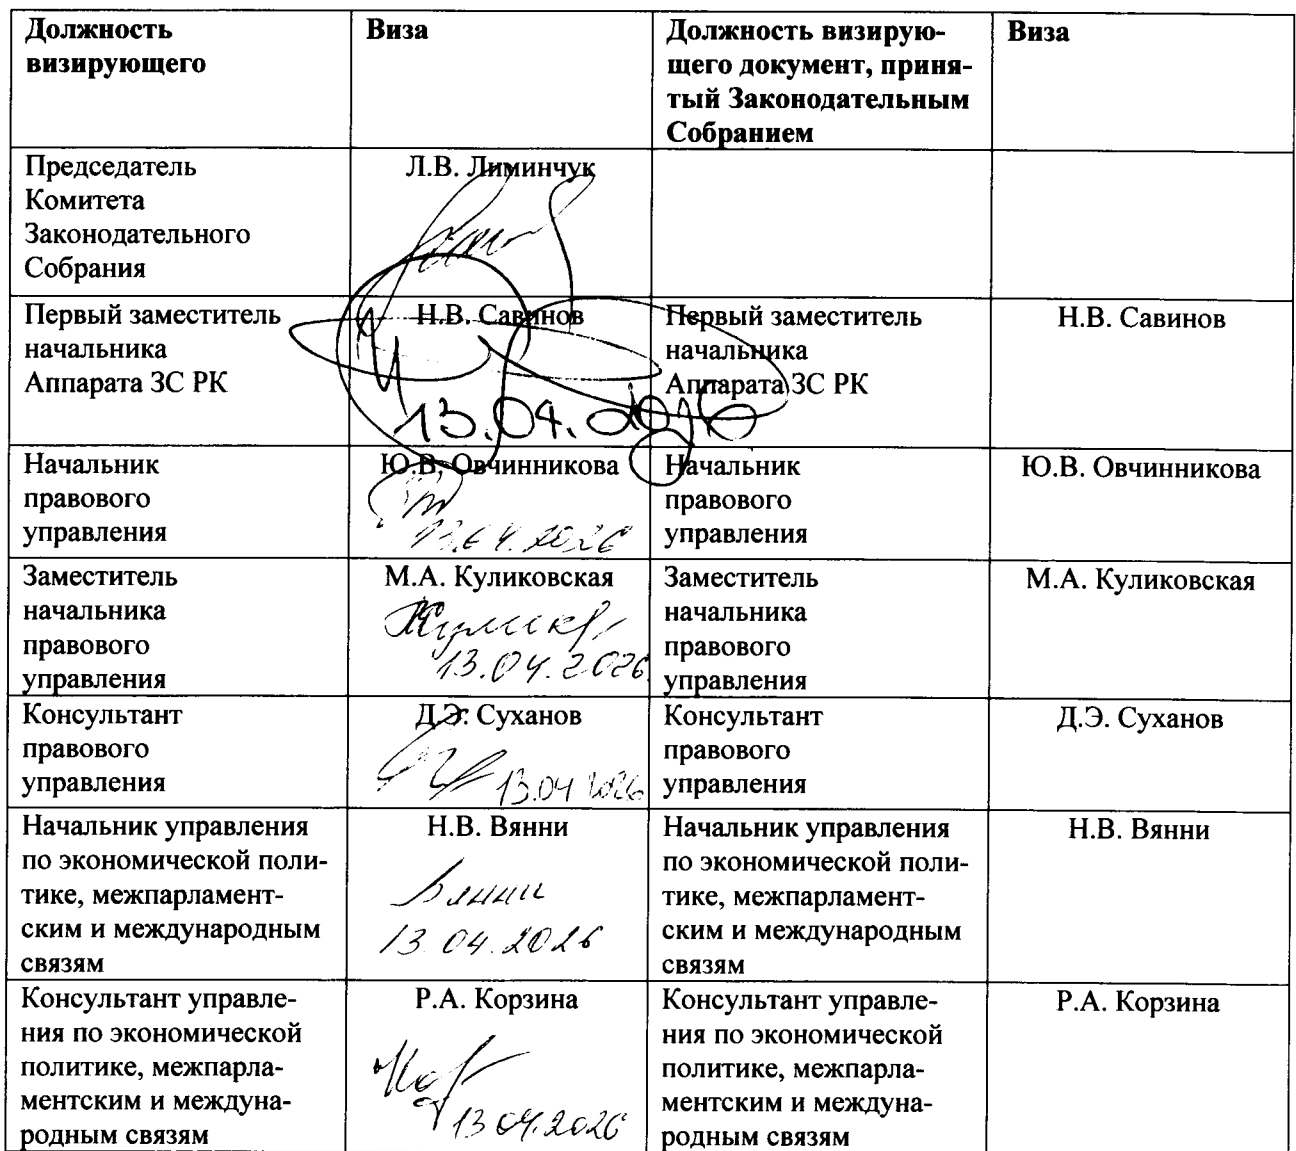 Должность
визирующего
Виза
Должность визирую-
щего документ, приня-
тый Законодательным
Собранием
Виза
Председатель
Комитета
Законодательного
Собрания
Л.В. Лиминчук
Первый заместитель
начальника
Аппарата ЗС РК
Н.В. Савинов
13.04.2026
Первый заместитель
начальника
Аппарата ЗС РК
Н.В. Савинов
Начальник
правового
управления
Ю.В. Овчинникова
13.04.2026
Начальник
правового
управления
Ю.В. Овчинникова
Заместитель
начальника
правового
управления
М.А. Куликовская
13.04.2026
Заместитель
начальника
правового
управления
М.А. Куликовская
Консультант
правового
управления
Д.Э. Суханов
13.04 2026
Консультант
правового
управления
Д.Э. Суханов
Начальник управления
по экономической поли-
тике, межпарламент-
ским и международным
связям
Н.В. Вянни
Вянни
13.04.2026
Начальник управления
по экономической поли-
тике, межпарламент-
ским и международным
связям
Н.В. Вянни
Консультант управле-
ния по экономической
политике, межпарла-
ментским и междуна-
родным связям
Р.А. Корзина
13.04.2026
Консультант управле-
ния по экономической
политике, межпарла-
ментским и междуна-
родным связям
Р.А. Корзина